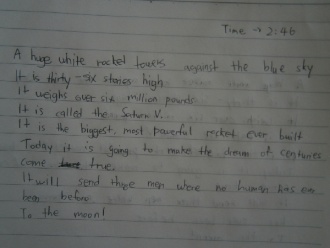 Time → 2:46
A huge white rocket towers against the blue sky
It is thirty-six stories high
It weighs over six million pounds
It is called the Saturn V.
It is the biggest, most powerful rocket ever built
Today it is going to make the dream of centuries
come true.
It will send three men were no human has ever
been before
To the moon!